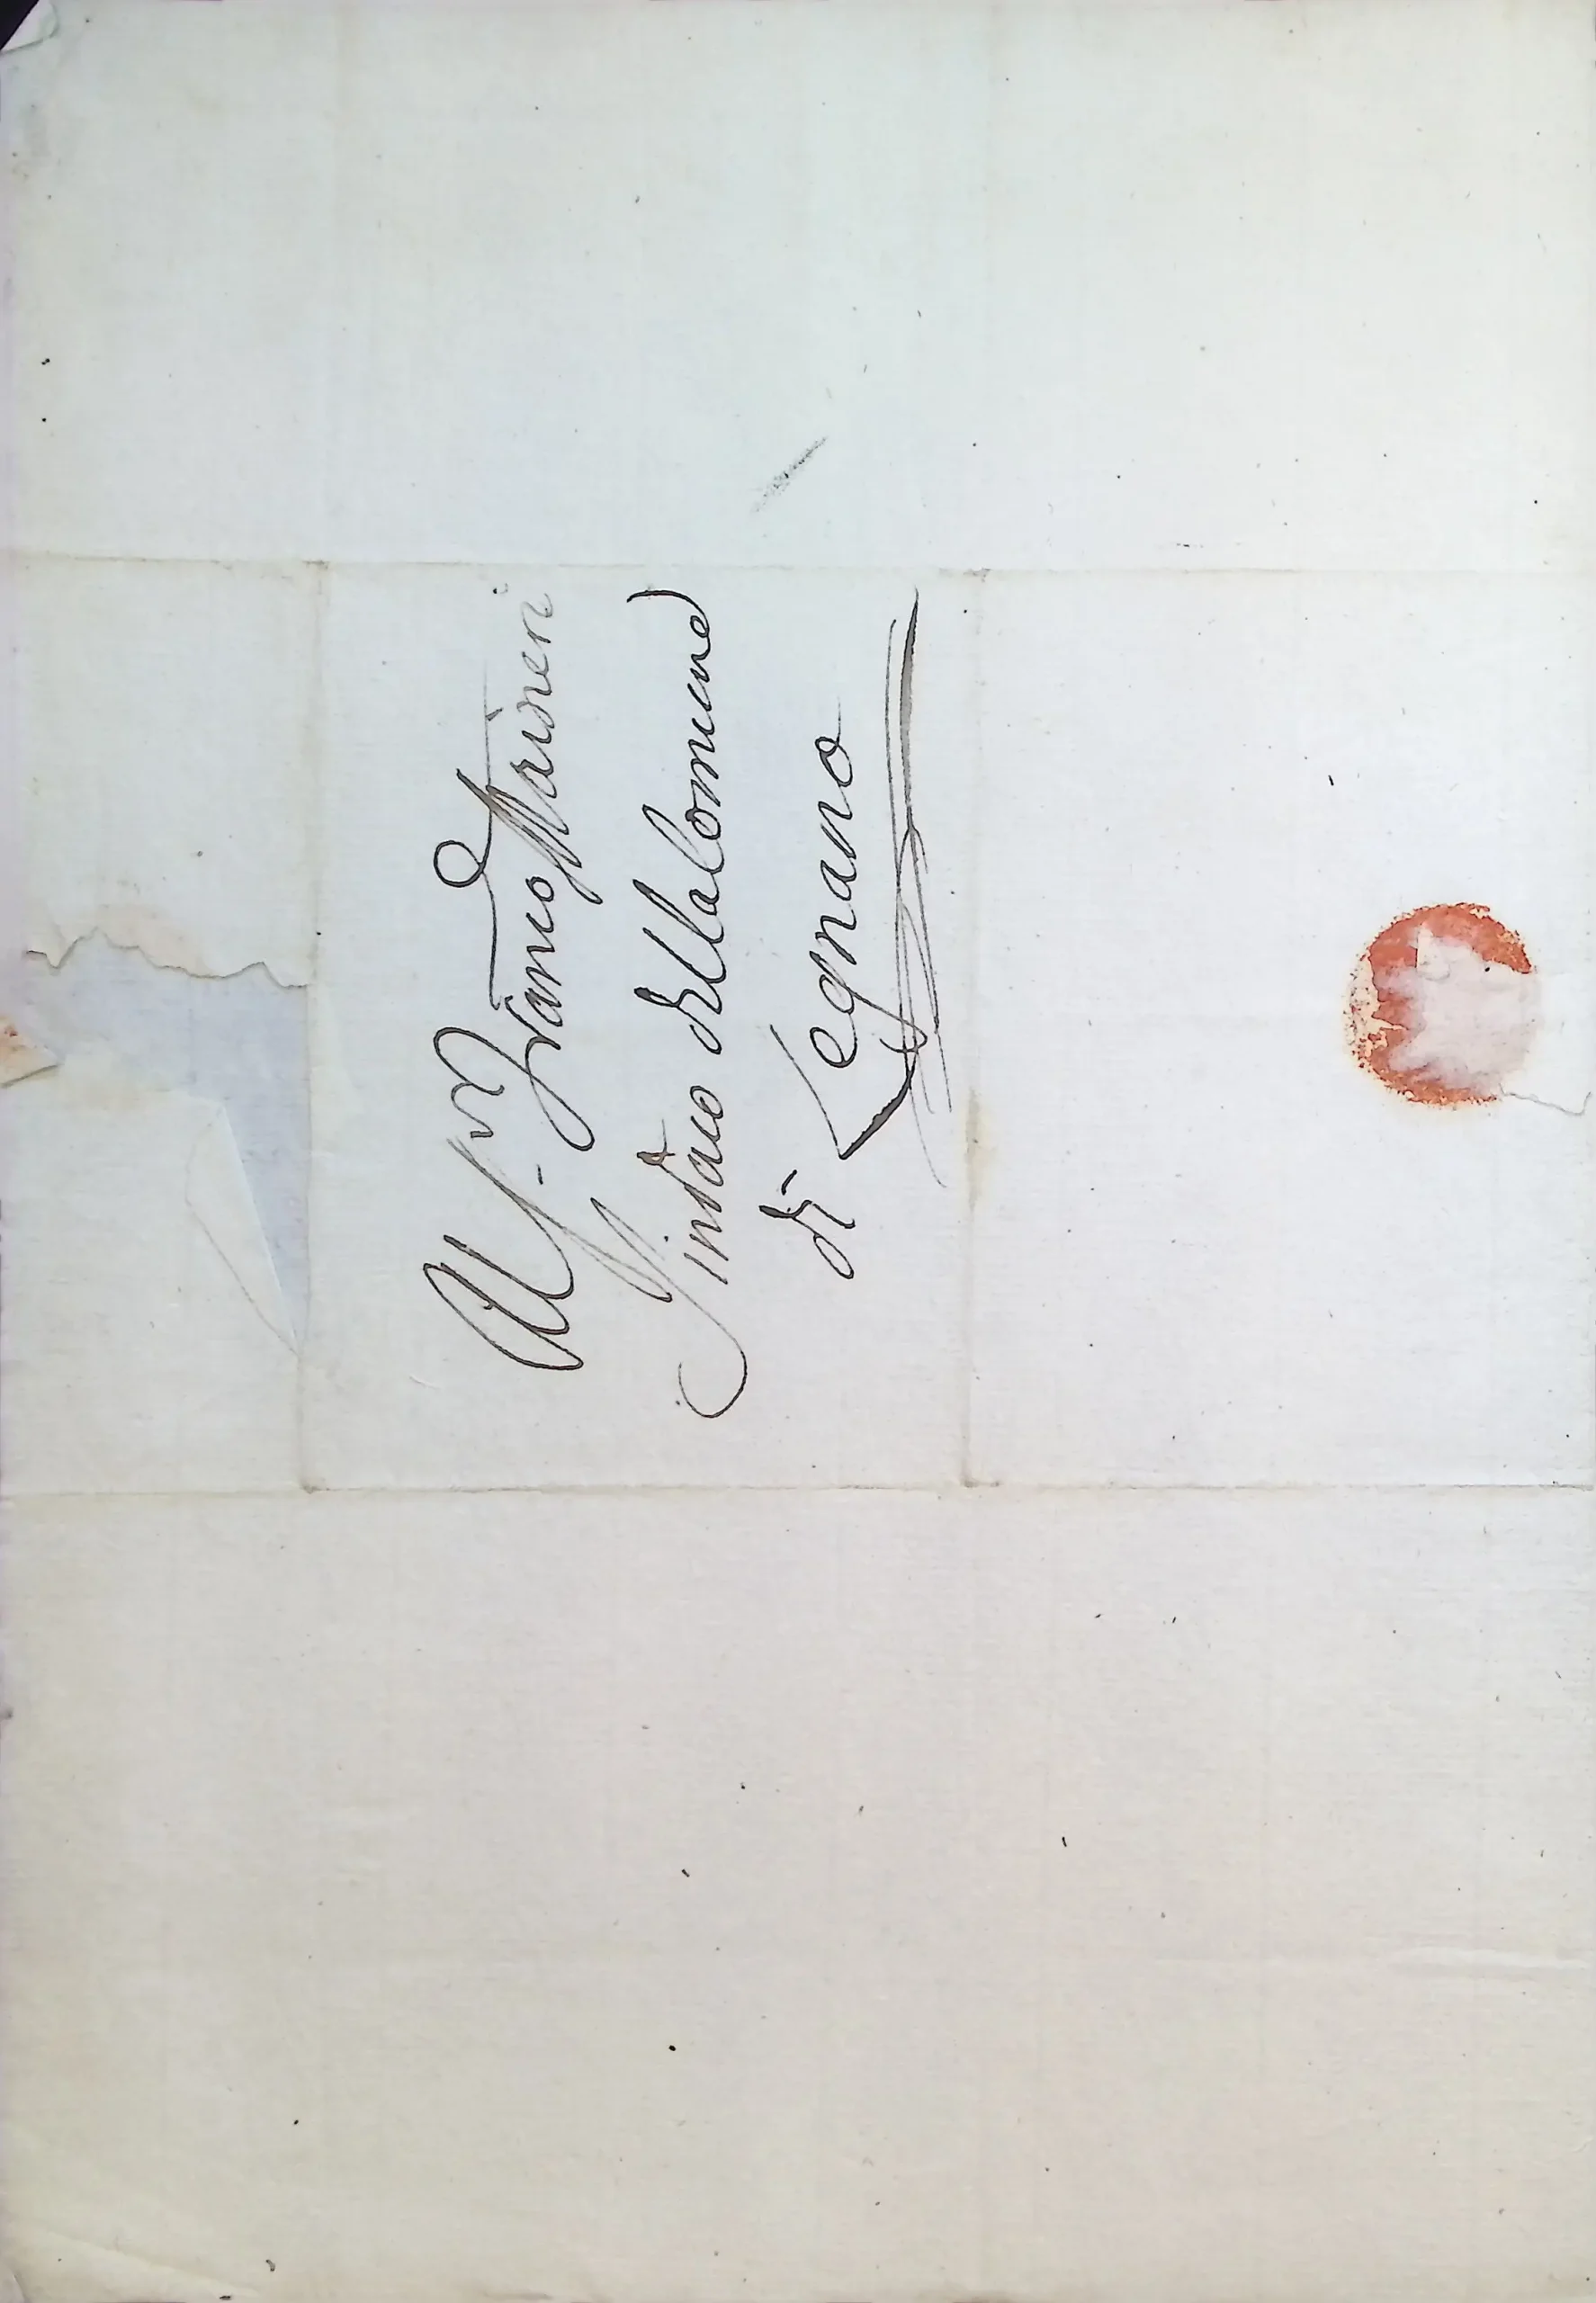 Al Sr. Franco Maineri
Sindaco della Comune
di Legnano